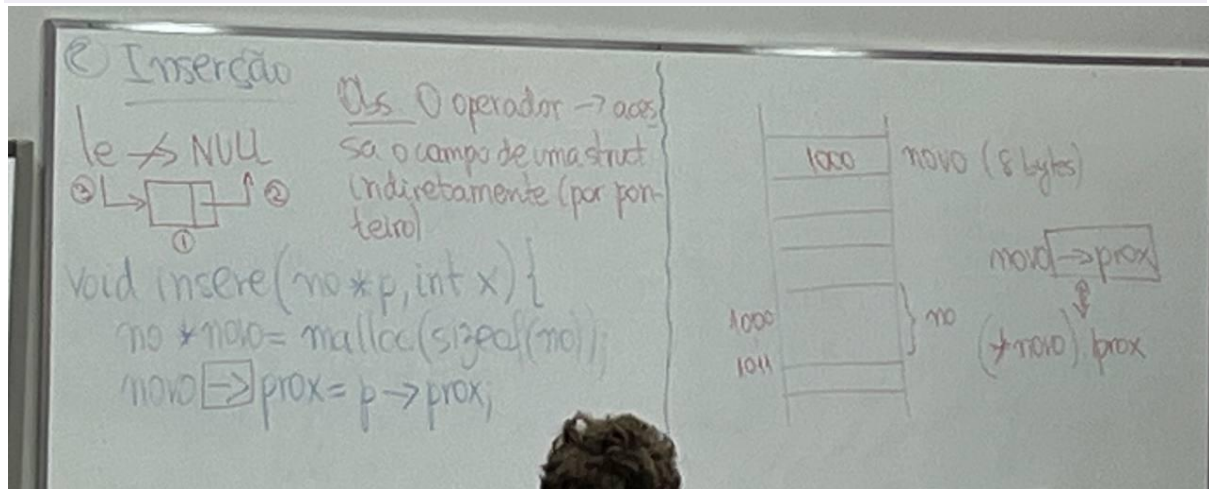 ② Inserção
le → NULL
③ ②
①
Obs O operador → aces
sa o campo de uma struct
indiretamente (por pon-
teiro)
void insere(no *p, int x) {
no * novo = malloc(sizeof(no));
novo → prox = p → prox;
1000 novo (8 bytes)
novo → prox
1000
no
(*novo).prox
1011